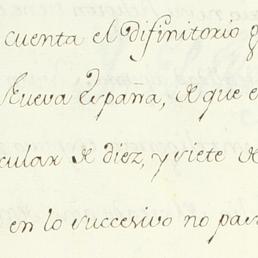 cuenta el Difinitorio
Nueva España, de que e
cular de diez, y siete de
en lo succesivo no pa